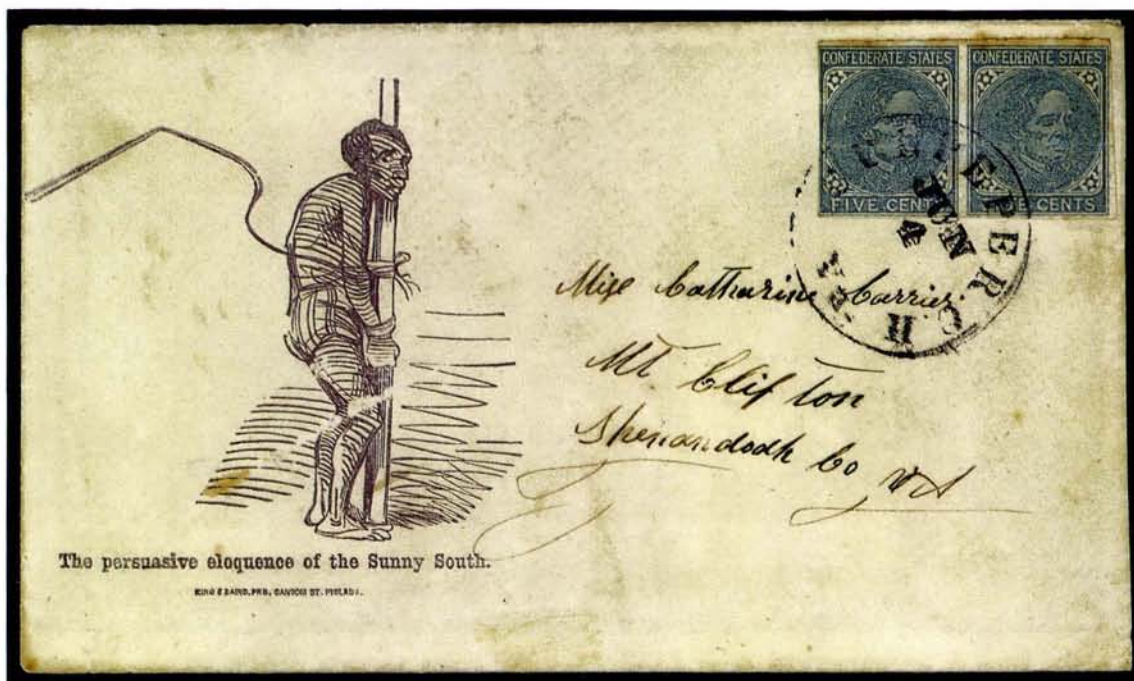 CONFEDERATE STATES CONFEDERATE STATES
FIVE CENTS CENTS
JUN
4
Miss Catharine Carrier
Mt. Clifton
Shenandoah Co VA
The persuasive eloquence of the Sunny South.
KING & BAIRD, PRS, SANSOM ST. PHILADA.